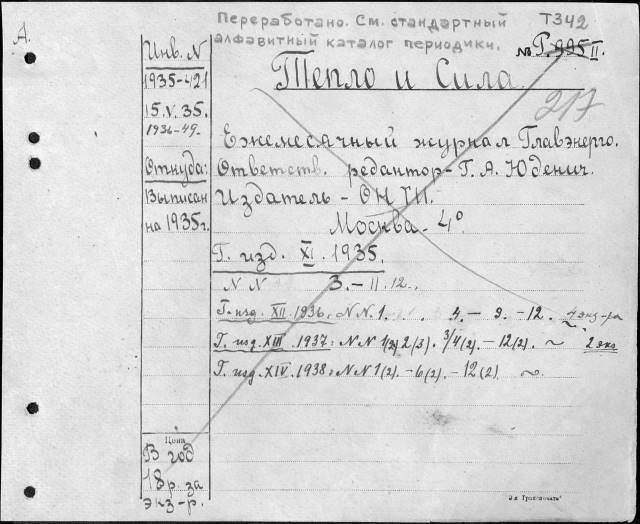 Переработано. См. стандартный
алфавитный каталог периодики.
Т342
А.
№ Р. 995 II.
Тепло и Сила.
217
Инв. N
1935-421
15.V.35.
1936-49.
Откуда:
Выписан
на 1935 г.
Ежемесячный журнал Главэнерго.
Ответств. редактор - Г. А. Юденич.
Издатель - ОНТИ.
Москва - 4°
Г. изд. XI. 1935.
N N 3. - 11. 12.
Г. изд. XII. 1936: N N 1. 4. - 9. - 12. ~ 4 экз-ра
Г. изд. XIII. 1937: N N 1(2) 2(3). 3/4(2). - 12(2). ~ 2 экз
Г. изд. XIV. 1938: N N 1(2). - 6(2). - 12(2) ~
Цена
В год
18 р. за
экз-р.